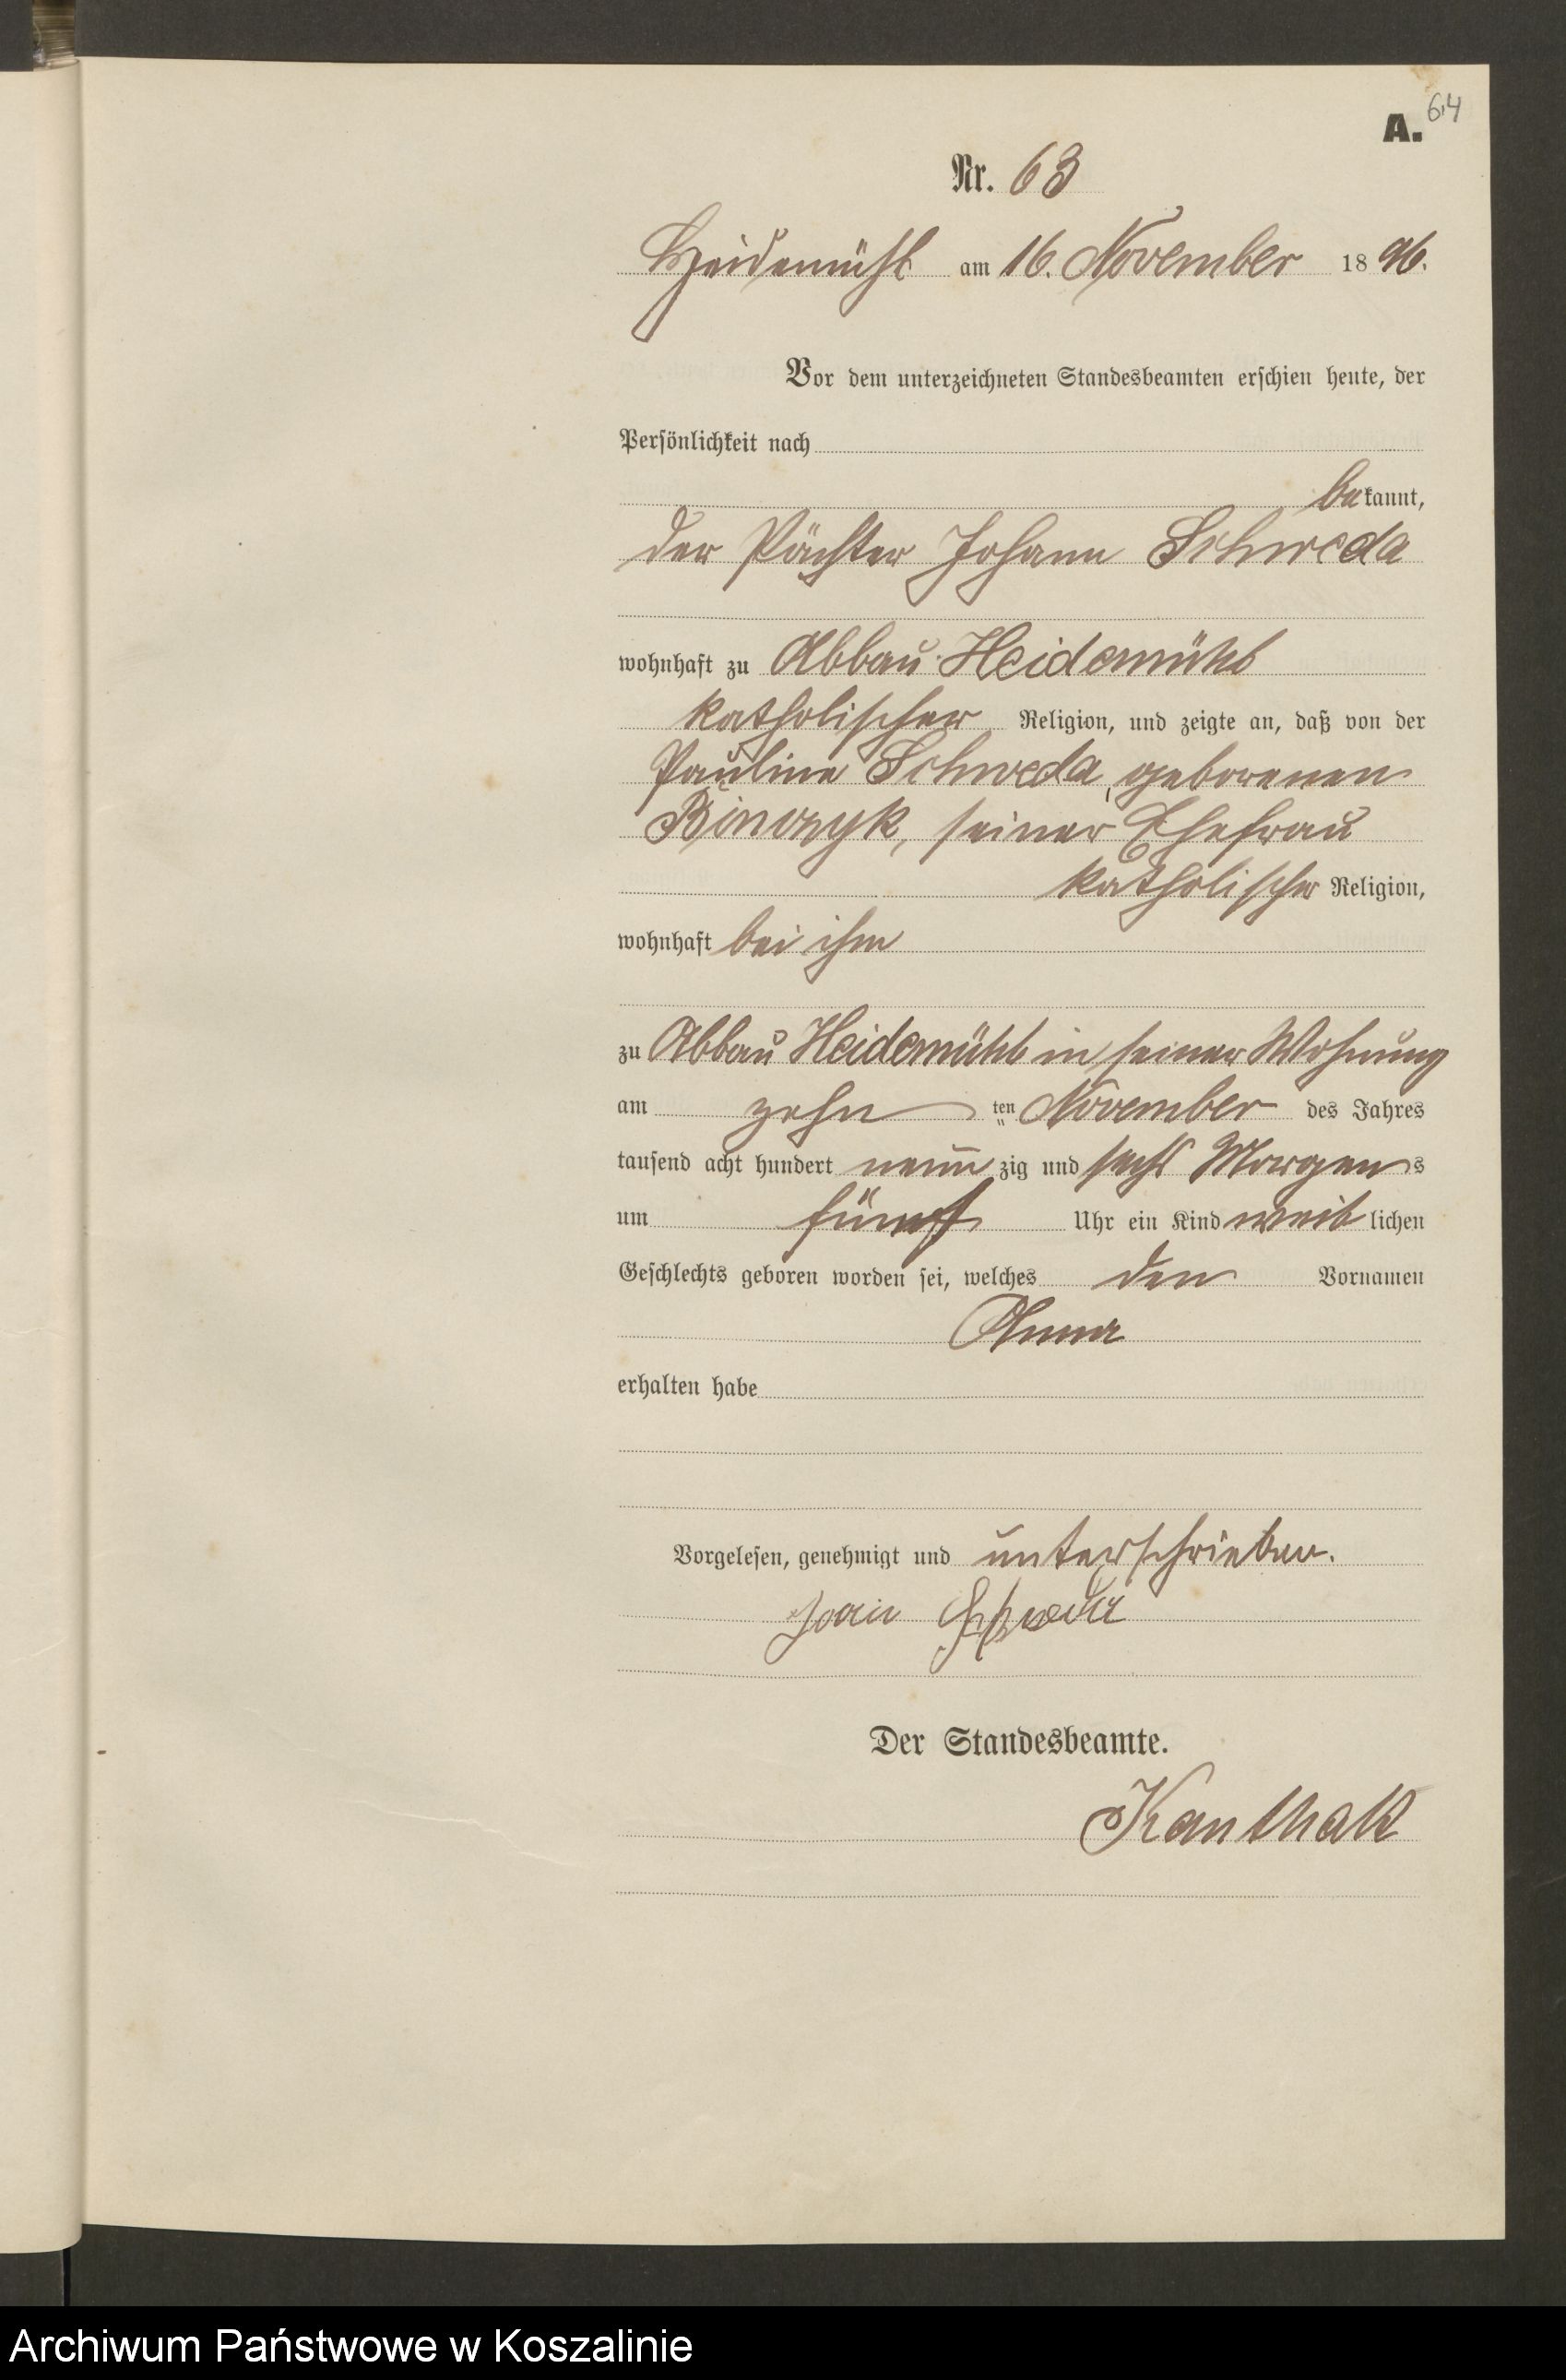 64
A.
Nr. 63
Heidemühl am 16. November 1896.
Vor dem unterzeichneten Standesbeamten erschien heute, der
Persönlichkeit nach
bekannt,
der Pächter Johann Schweda
wohnhaft zu Abbau Heidemühl
katholischer Religion, und zeigte an, daß von der
Pauline Schweda, geborenen
Binczyk, seiner Ehefrau
katholischer Religion,
wohnhaft bei ihm
zu Abbau Heidemühl in seiner Wohnung
am zehn ten November des Jahres
tausend acht hundert neunzig und sechs Morgens
um fünf Uhr ein Kind weiblichen
Geschlechts geboren worden sei, welches den Vornamen
Anna
erhalten habe
Vorgelesen, genehmigt und unterschrieben.
Joan
Der Standesbeamte.
Kanthak
Archiwum Państwowe w Koszalinie